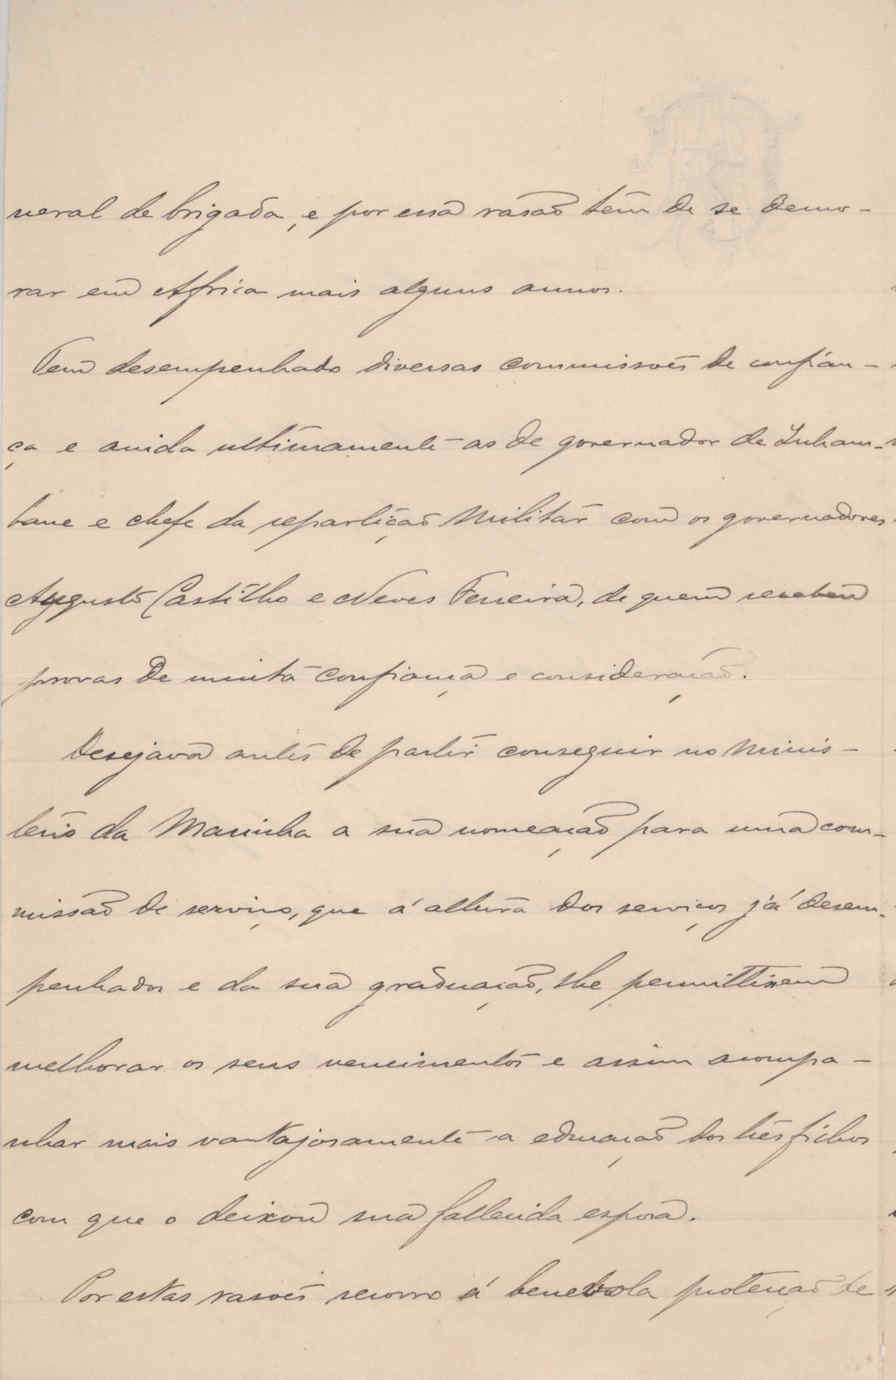 neral de brigada, e por essa rasão tem de se demo-
rar em Africa mais alguns annos.
Tem desempenhado diversas commissões de confian-
ça e ainda ultimamente as de governador de Inham-
bane e chefe da repartição militar com os governadores
Augusto Castilho e Neves Ferreira, de quem recebeu
provas de muita confiança e consideração.
Desejava antes de partir conseguir no Minis-
terio da Marinha a sua nomeação para uma com-
missão de serviço, que á altura dos serviços já desem-
penhados e da sua graduação, lhe permittissem
melhorar os seus vencimentos e assim acompa-
nhar mais vantajosamente a educação dos tres filhos
com que o deixou sua fallecida esposa.
Por estas rasões recorro á benevola proteção de